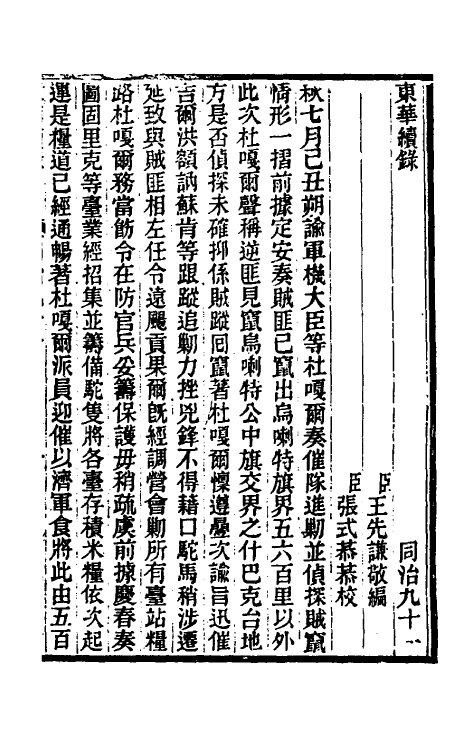 東華續錄　同治九十一
臣王先謙敬編
臣張式恭恭校
秋七月己丑朔諭軍機大臣等杜嘎爾奏催隊進勦並偵探賊竄
情形一摺前據定安奏賊匪已竄出烏喇特旗界五六百里以外
此次杜嘎爾聲稱逆匪見竄烏喇特公中旗交界之什巴克台地
方是否偵探未確抑係賊蹤囘竄著杜嘎爾懍遵疊次諭旨迅催
吉爾洪額訥蘇肯等跟蹤追勦力挫兇鋒不得藉口駝馬稍涉遷
延致與賊匪相左任令遠颺貢果爾旣經調營會勦所有臺站糧
路杜嘎爾務當飭令在防官兵妥籌保護毋稍疏虞前據慶春奏
圖固里克等臺業經招集並籌備駝隻將各臺存積米糧依次起
運是糧道已經通暢著杜嘎爾派員迎催以濟軍食將此由五百